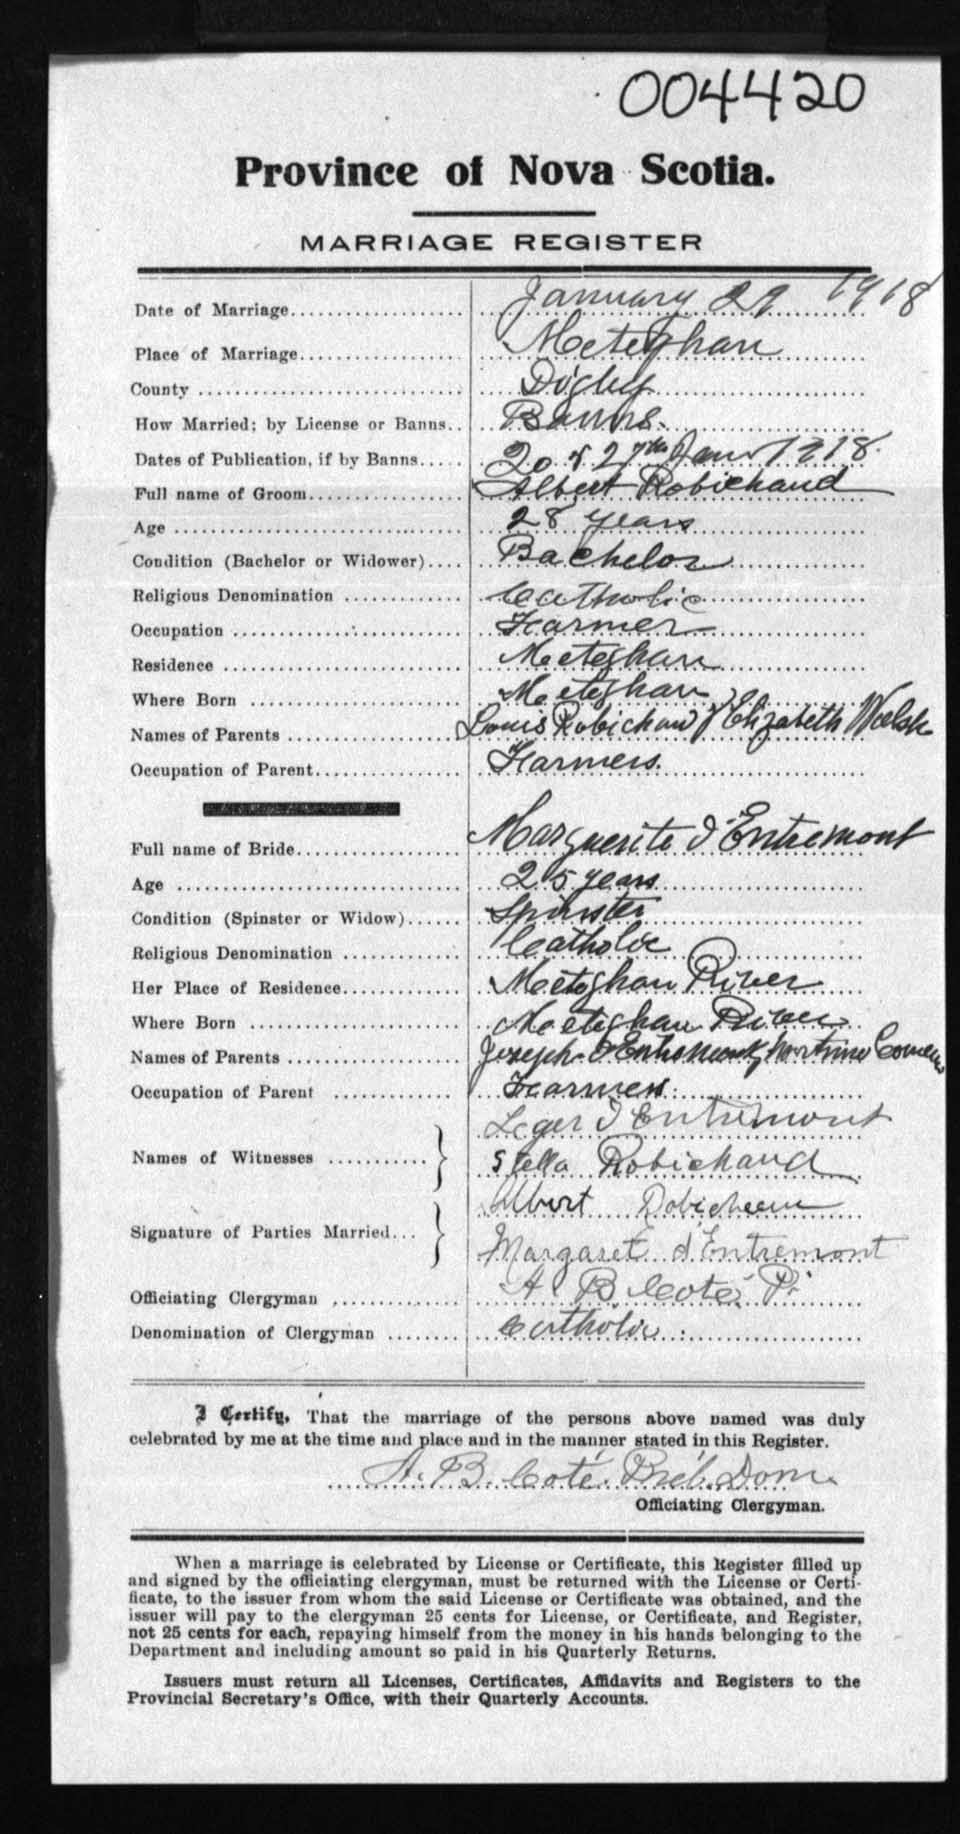 004420
Province of Nova Scotia.
MARRIAGE REGISTER
Date of Marriage January 29 1918
Place of Marriage Meteghan
County Digby
How Married; by License or Banns Banns.
Dates of Publication, if by Banns 20 & 27th Jan 1918.
Full name of Groom Albert Robichaud
Age 28 years
Condition (Bachelor or Widower) Bachelor
Religious Denomination Catholic
Occupation Farmer
Residence Meteghan
Where Born Meteghan
Names of Parents Louis Robichaud & Elizabeth
Occupation of Parent Farmers.
Full name of Bride Marguerite d'Entremont
Age 25 years
Condition (Spinster or Widow) Spinster
Religious Denomination Catholic
Her Place of Residence Meteghan River
Where Born Meteghan River
Names of Parents Joseph d'Entremont & Comeau
Occupation of Parent Farmers.
Names of Witnesses Leger d'Entremont
Stella Robichaud
Signature of Parties Married Albert
Margaret d'Entremont
Officiating Clergyman A B Coté P.
Denomination of Clergyman Catholic.
I Certify, That the marriage of the persons above named was duly
celebrated by me at the time and place and in the manner stated in this Register.
A. B. Coté. Dom.
Officiating Clergyman.
When a marriage is celebrated by License or Certificate, this Register filled up
and signed by the officiating clergyman, must be returned with the License or Certi-
ficate, to the issuer from whom the said License or Certificate was obtained, and the
issuer will pay to the clergyman 25 cents for License, or Certificate, and Register,
not 25 cents for each, repaying himself from the money in his hands belonging to the
Department and including amount so paid in his Quarterly Returns.
Issuers must return all Licenses, Certificates, Affidavits and Registers to the
Provincial Secretary's Office, with their Quarterly Accounts.